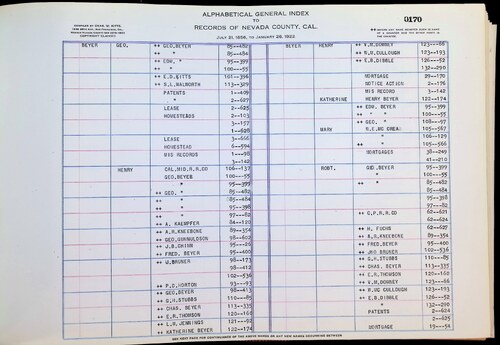 ALPHABETICAL GENERAL INDEX
TO
RECORDS OF NEVADA COUNTY, CAL.
JULY 21, 1856, TO JANUARY 26, 1922
0170
BEYER GEO. ++ GEO.BEYER 85--482
85--484
++ EDW. " 95--399
++ " " 100--55
++ E.D.GITTS 101--396
++ S.L.WALMORTH 113--329
PATENTS 1--409
" 2--627
LEASE 2--625
HOMESTEADS 2--103
3--157
1--628
LEASE 3--666
HOMESTEAD 6--594
MIS RECORDS 1--98
3--142
HENRY CAL.MID.R.R.CO 106--137
GEO.BEYER 100--55
" 95--399
++ GEO. " 85--482
++ " 85--484
++ " 95--398
++ " 97--82
++ A. KAEMPFER 84--120
++ A.R.KNEEBONE 89--354
++ GEO.GUNNULDSON 98--602
++ J.B.CHINN 98--28
++ FRED. BEYER 95--400
++ J.BRUNER 98--173
" 98--412
102--536
++ P.D.HORTON 93--93
++ GEO.BEYER 98--413
++ G.H.STUBBS 110--85
++ CHAS. BEYER 113--335
++ E.R.THOMSON 120--160
++ L.W.JENNINGS 121--92
++ KATHERINE BEYER 122--174
BEYER HENRY ++ W.M.DONNEY 123--66
++ W.M.CULLOUGH 123--193
++ E.B.DIBBLE 126--52
132--290
MORTGAGE 29--170
NOTICE ACTION 2--176
MIS RECORD 3--142
KATHERINE HENRY BEYER 122--174
++ EDW. BEYER 95--399
++ " " 100--55
++ GEO. " 108--97
MARK B.E.BG CREAG 105--567
" 106--129
" 105--566
MORTGAGES 38--249
41--210
ROBT. GEO.BEYER 95--399
++ " 100--55
++ " 85--482
85--484
95--398
97--82
++ C.P.R.R.CO 62--621
62--624
++ H. FUCHS 62--627
++ A.R.KNEEBONE 89--354
++ FRED.BEYER 95--400
++ JNO BRUNER 102--536
++ G.H.STUBBS 110--85
++ CHAS. BEYER 113--335
++ E.R.THOMSON 120--160
++ W.M. DOWNEY 123--66
++ W.MG CULLOUGH 123--193
++ E.B.DIBBLE 126--52
" 132--290
PATENTS 2--624
2--625
MORTGAGE 19--54